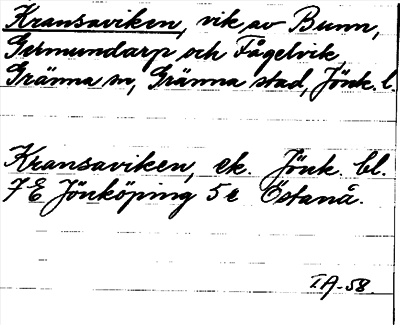 Kransaviken, vik av Bunn,
Germundarp och Fågelvik
Gränna sn, Gränna stad, Jönk. l.
Kransaviken, ek. Jönk. bl.
7 E Jönköping 5 e Östanå.
IA-58.